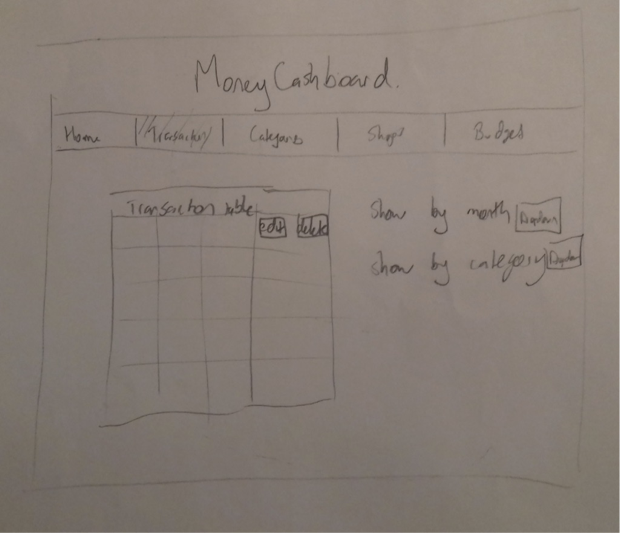 Money Cashboard.
Home Transactions Categories Shops Budges
Transaction table
edit delete
Show by month
show by category